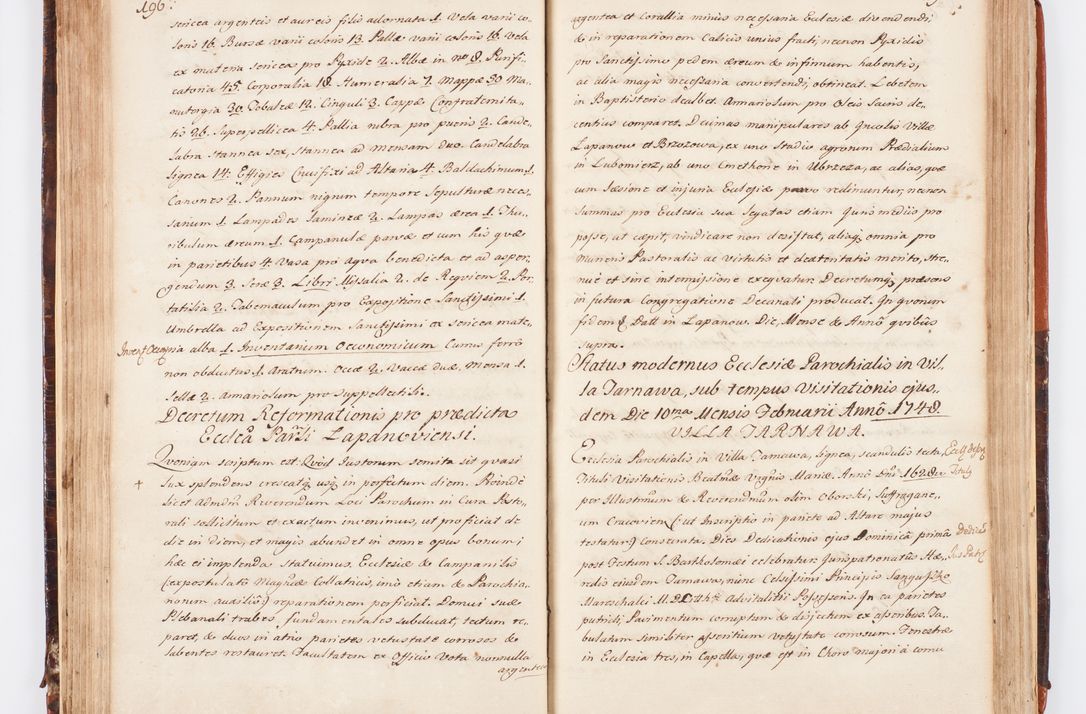 196.
sericea argenteis et aureis filis adornata 1. Vela varii co-
loris 16. Bursæ varii coloris 13. Pallæ varii coloris 16. Vela
ex materia sericea pro Pyxide 2. Albæ in nro 8. Purifi-
catoria 45. Corporalia 18. Humeralia 7. Mappæ 30 Ma-
nutergia 30. Tobaleæ 12. Cinguli 3. Cappæ Confraternita-
tis 26. Superpellicea 4. Pallia rubra pro pueris 2. Cande-
labra stannea sex, stannea ad mensam duo. Candelabra
lignea 14. Effigies Crucifixi ad Altaria 4. Baldachinum 1.
Canones 2. Pannum nigrum tempore Sepulturæ neces-
sarium 1. Lampades lamineæ 2. Lampas ærea 1. Thu-
ribulum æreum 1. Campanulæ parvæ et cum his quæ
in parietibus 4. Vasa pro aqua benedicta et ad asper-
gendum 3. Seræ 3. Libri Missalia 2. de Requiem 2. Por-
tatilia 2. Tabernaculum pro Expositione Sanctissimi 1.
Umbrella ad Expositionem Sanctissimi ex sericea mate-
ria alba 1. Inventarium Oeconomicum Currus ferro
non obductus 1. Aratrum. Occæ 2. Vaccæ duæ, Mensa 1.
Sellæ 2. Armariolum pro suppellectili.
Decretum Reformationis pro prædicta
Ecclea Parli Lapanoviensi.
Quoniam scriptum est: Quod Justorum semita sit quasi
lux splendens crescatq usq in perfectum diem. Proinde
licet admdm Reverendum Loci Parochum in Cura Pasto-
rali sollicitum et exactum invenimus, ut proficiat de
die in diem, et magis abundet in omne opus bonum;
hæc ei implenda statuimus. Ecclesiæ & Campanilis
(expostulato Magficæ Collatricis, imo etiam & Parochia-
norum auxilio) reparationem perficiat. Domui suæ
Plebanali trabes fundamentales subducat, tectum re-
paret, & duos in atrio parietes vetustate corrosos &
labentes restauret. Facultatem ex Officio Vota nonnulla
argentea
argentea et Corallia minus necessaria Ecclesiæ divendendi
& in reparationem Calicis unius fracti, necnon Pyxidis
pro Sanctissimo pedem æreum & infirmum habentis,
ac alia magis necessaria convertendi, obtineat. Lebetem
in Baptisterio dealbet. Armariolum pro Oleis Sacris de-
centius comparet. Decimas manipulares ab Incolis Villæ
Lapanow et Brzozowa, ex uno Stadio agrorum Prædialium
in Lubomierz, ab uno Cmethone in Ubrzeza, ac alias, quæ
cum læsione et injuria Ecclesiæ parvo redimuntur, necnon
summas pro Ecclesia sua legatas etiam Juris mediis pro
posse, ut cæpit, vindicare non desistat, aliaq omnia pro
muneris Pastoralis ac virtutis et dexteritatis merito, stre-
nue et sine intermissione exequatur. Decretumq præsens
in futura Congregatione Decanali producat. In quorum
fidem &. Datt in Lapanow. Die, Mense & Anno quibus
supra.
Status modernus Ecclesiæ Parochialis in Vil-
la Tarnawa, sub tempus Visitationis ejus-
dem Die 10ma Mensis Februarii Anno 1748.
VILLA TARNAWA.
Ecclesia Parochialis in Villa Tarnawa, lignea, scandulis tecta,
Tituli Visitationis Beatmæ Virginis Mariæ. Anno Dni 1628va
per Illustrmum & Reverendmum olim Oborski, Suffragane-
um Cracovien (: ut Inscriptio in pariete ad Altare majus
testatur) Consecrata. Dies Dedicationis ejus Dominica prima
post Festum S. Bartholomæi celebratur. Jurispatronatus Hæ-
redis ejusdem Tarnawa, nunc Celsissimi Principis Sangusko
Mareschalci M. D. Lith. Advitalitii Possessoris. In ea parietes
putridi, Pavimentum corruptum & disjectum ex asseribus. Ta-
bulatum similiter assentium vetustate corrosum. Fenestræ
in Ecclesia tres, in Capella, quæ est in Choro majori à cornu